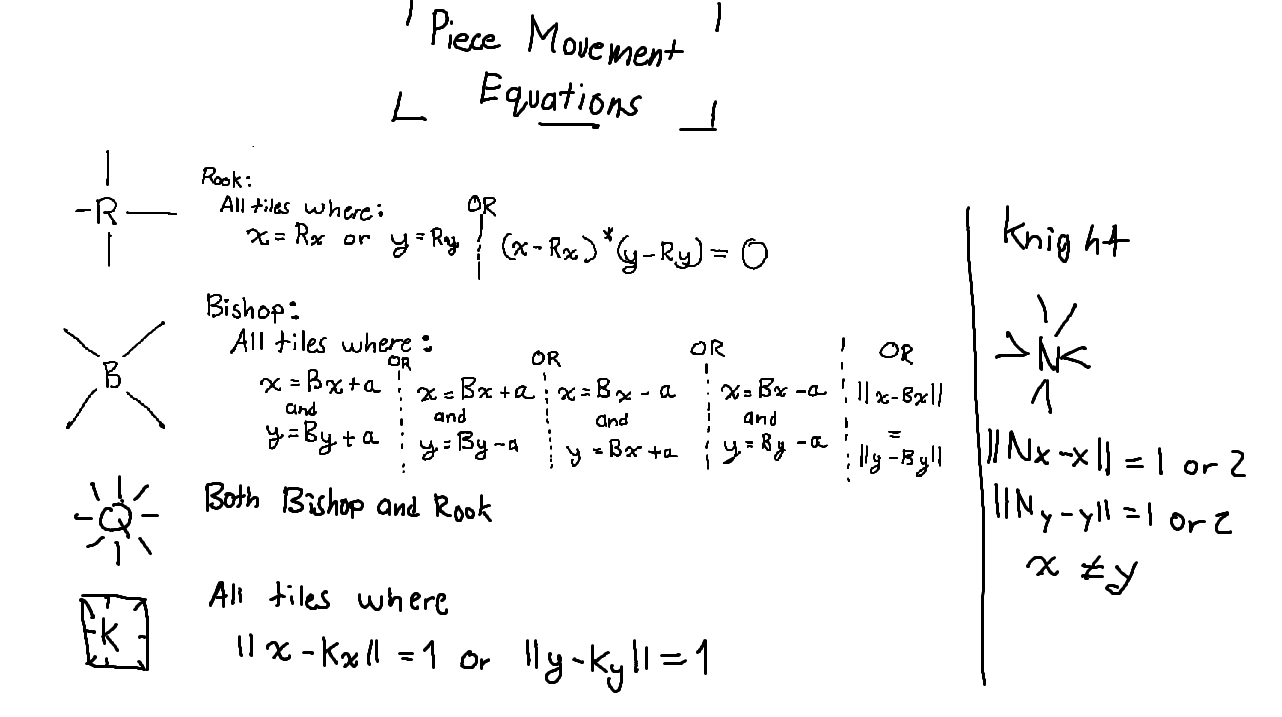 Piece Movement
Equations
R
Rook:
All tiles where:
x = Rx or y = Ry
OR
(x - Rx) * (y - Ry) = 0
B
Bishop:
All tiles where:
x = Bx + a
and
y = By + a
OR
x = Bx + a
and
y = By - a
OR
x = Bx - a
and
y = Bx + a
OR
x = Bx - a
and
y = By - a
OR
||x - Bx||
=
||y - By||
Q
Both Bishop and Rook
K
All tiles where
||x - Kx|| = 1 or ||y - Ky|| = 1
Knight
N
||Nx - x|| = 1 or 2
||Ny - y|| = 1 or 2
x ≠ y